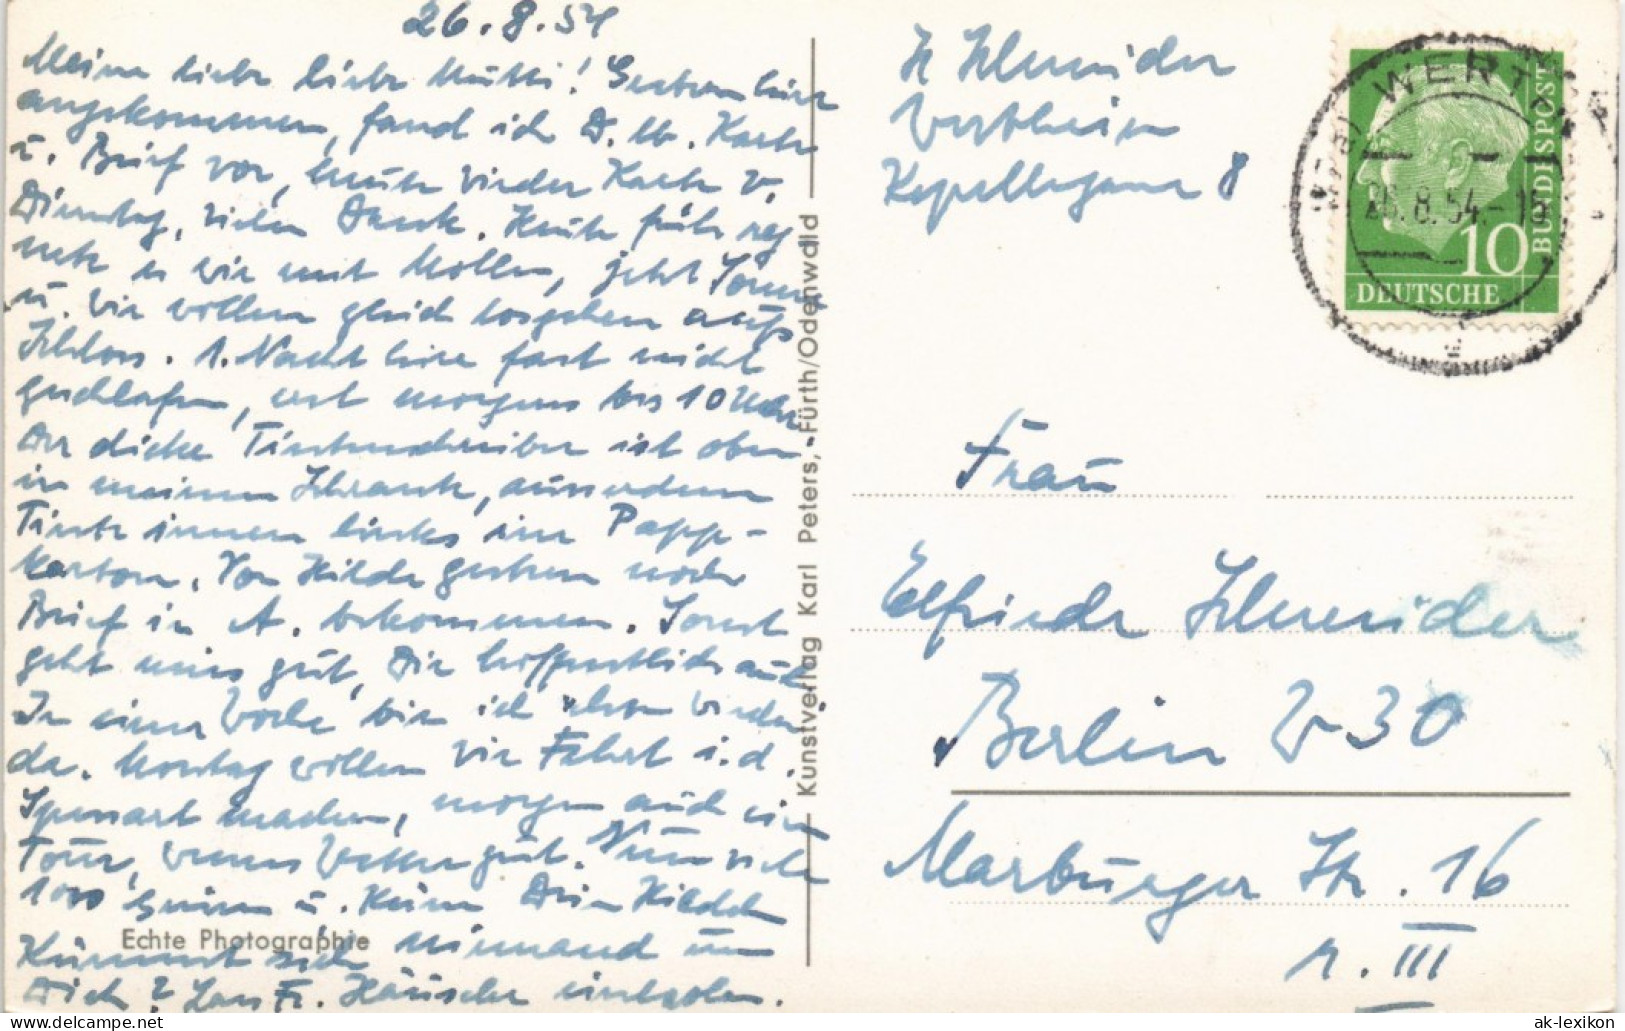 26.8.54
Meine liebe liebe Mutti! Gestern hier
angekommen, fand ich D. lb. Karte
u. Brief vor, heute wieder Karte v.
Dienstag, vielen Dank. Heute früh reg
nete es wie mit Mollen, jetzt Sonne
u. wir wollen gleich losgehen aufs
Schloss. 1. Nacht hier fast nicht
geschlafen, erst morgens bis 10 Uhr
Der dicke Tintenschreiber ist oben
in meinem Schrank, ausserdem
Tinte innen links im Papp-
karton. Von Hilde gestern noch
Brief in A. bekommen. Sonst
geht uns gut, Dir hoffentlich auch
In einer Woche bin ich eben wieder
da. Montag wollen wir Fahrt i. d.
Spessart machen, morgen auch eine
Tour, wenns Wetter gut. Nun viele
1000 Grüsse u. Küsse Dein Hildchen
Kümmert sich niemand um
Dich? Lass Fr. Häusche einholen.
Echte Photographie
Kunstverlag Karl Peters, Fürth/Odenwald
H Schneider
Wertheim
Kapellengasse 8
WERTH
26.8.54.-15
DEUTSCHE
BUNDESPOST
10
Frau
Elfriede Schneider
Berlin W 30
Marburger Str. 16
r. III
ak-lexikon